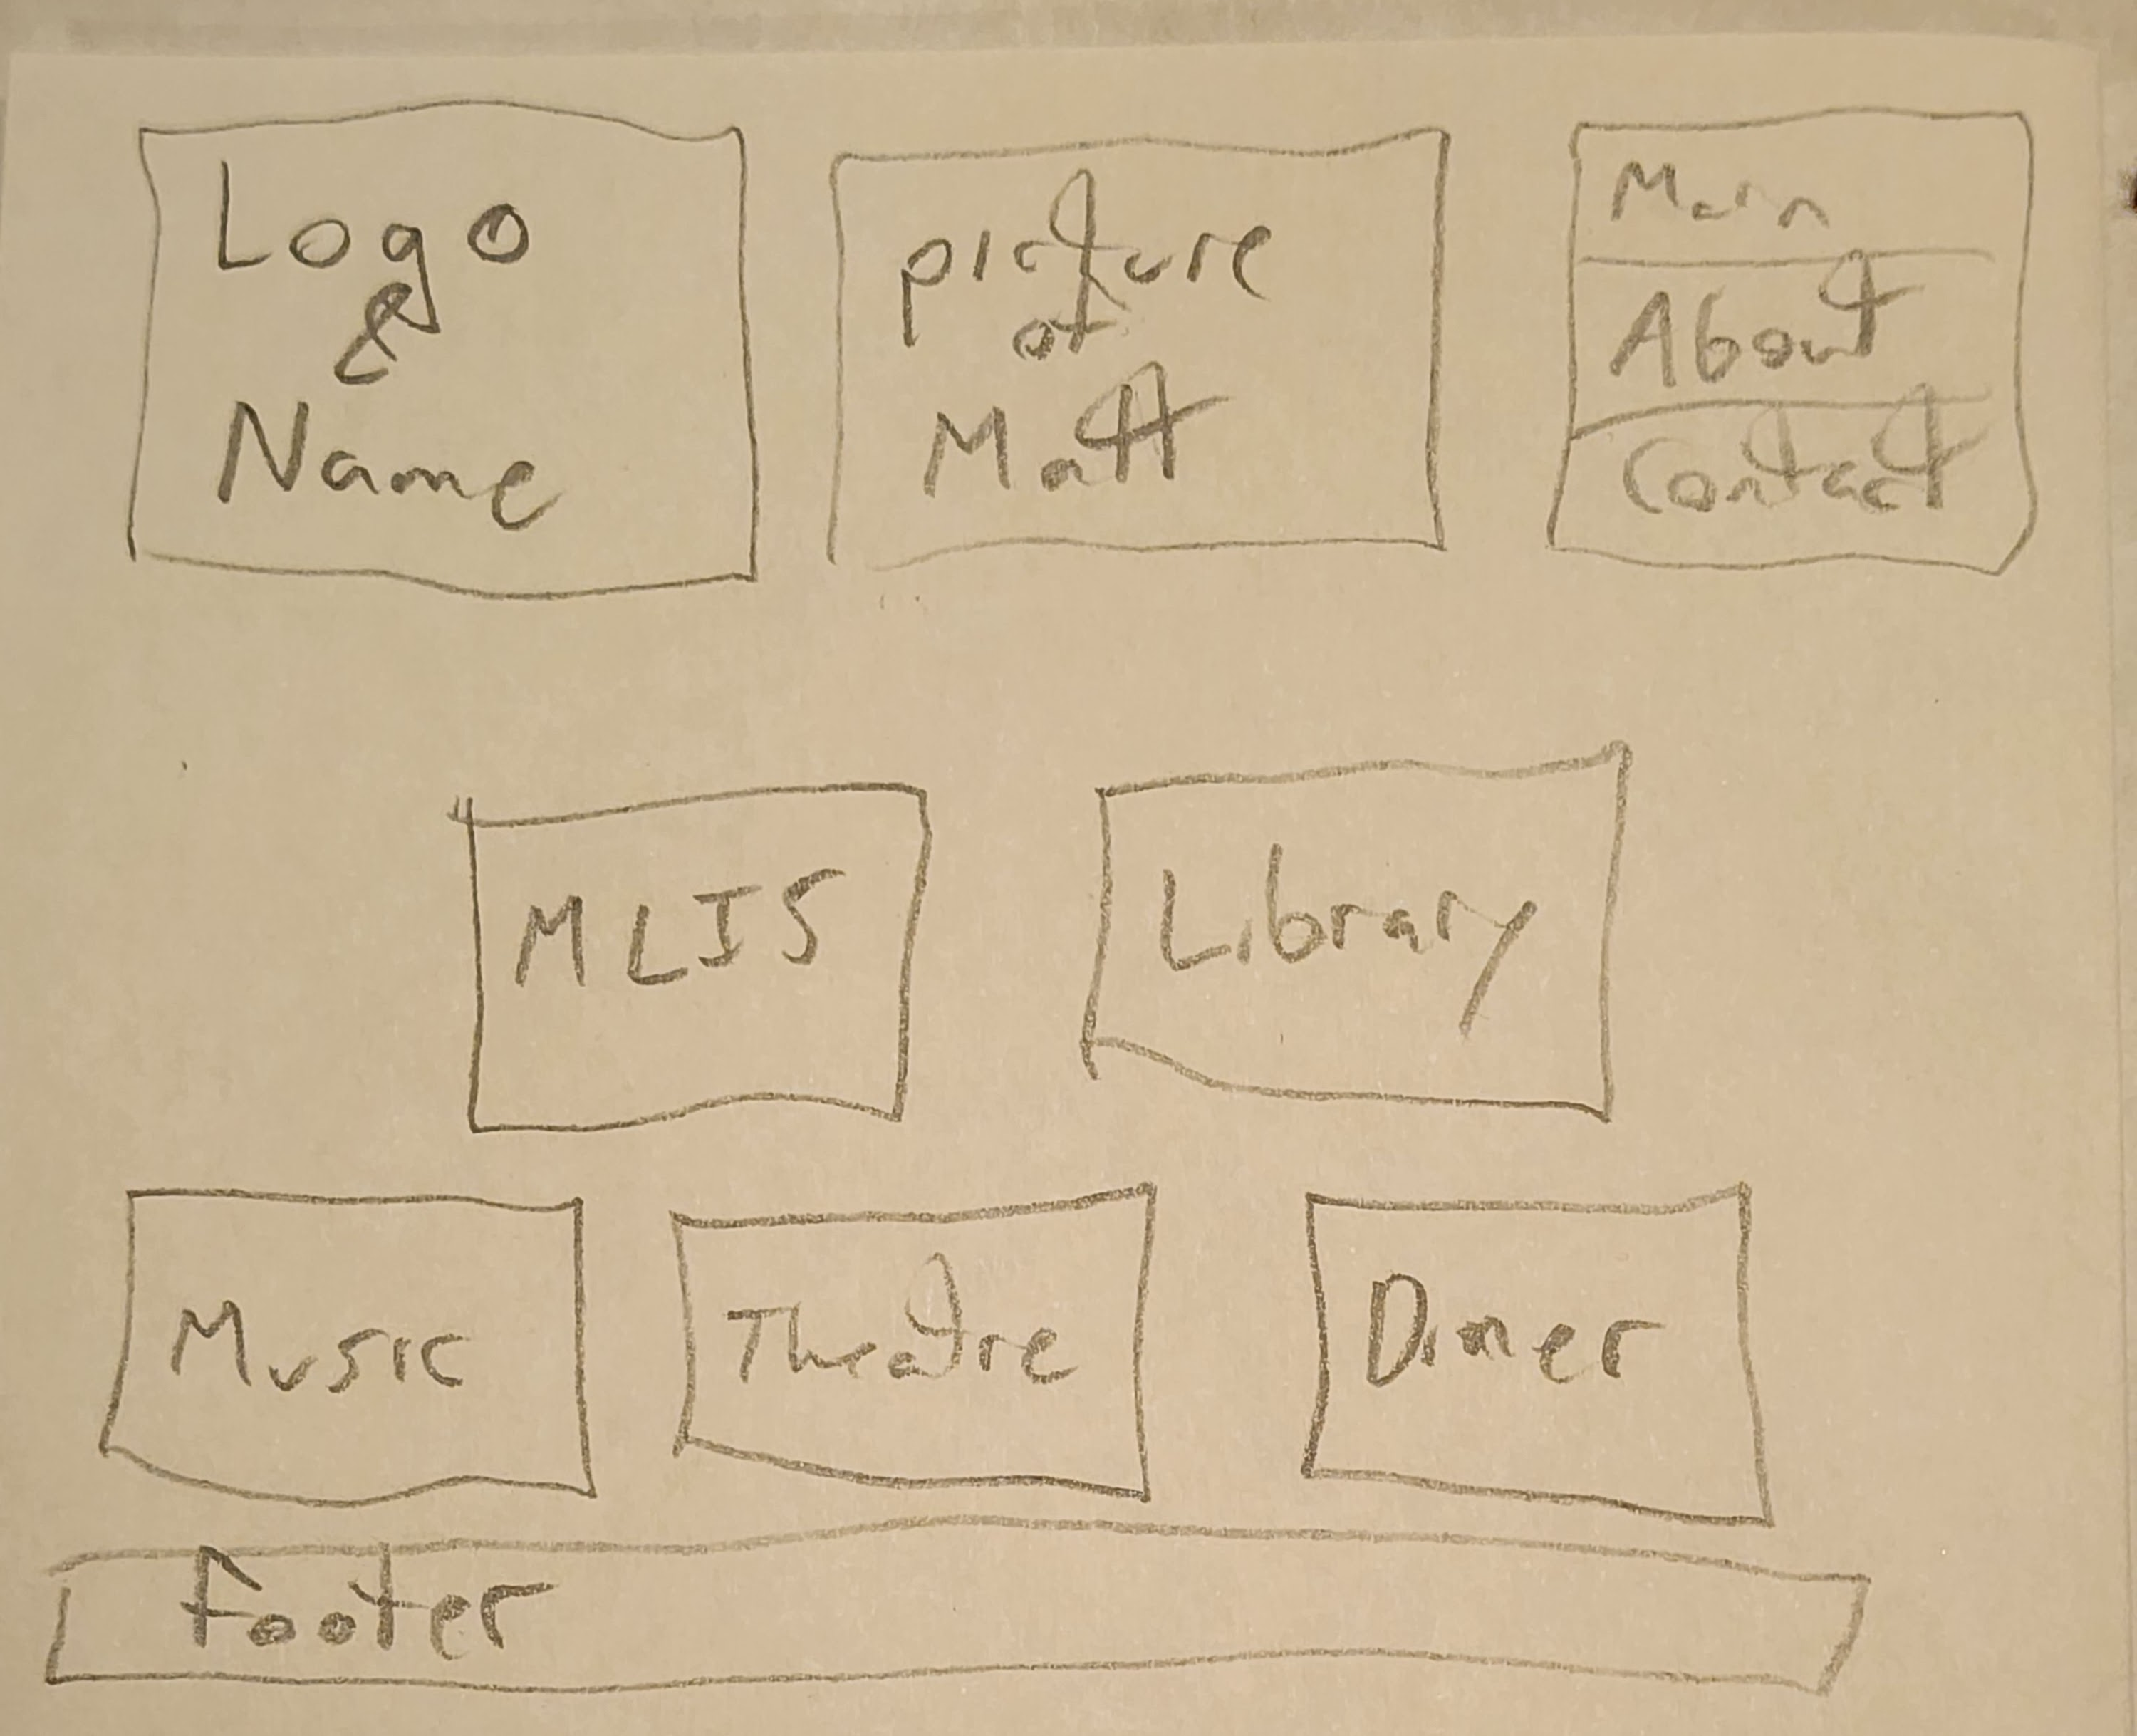 Logo
&
Name
picture
of
Matt
Main
About
Contact
MLIS
Library
Music
Theatre
Diner
Footer